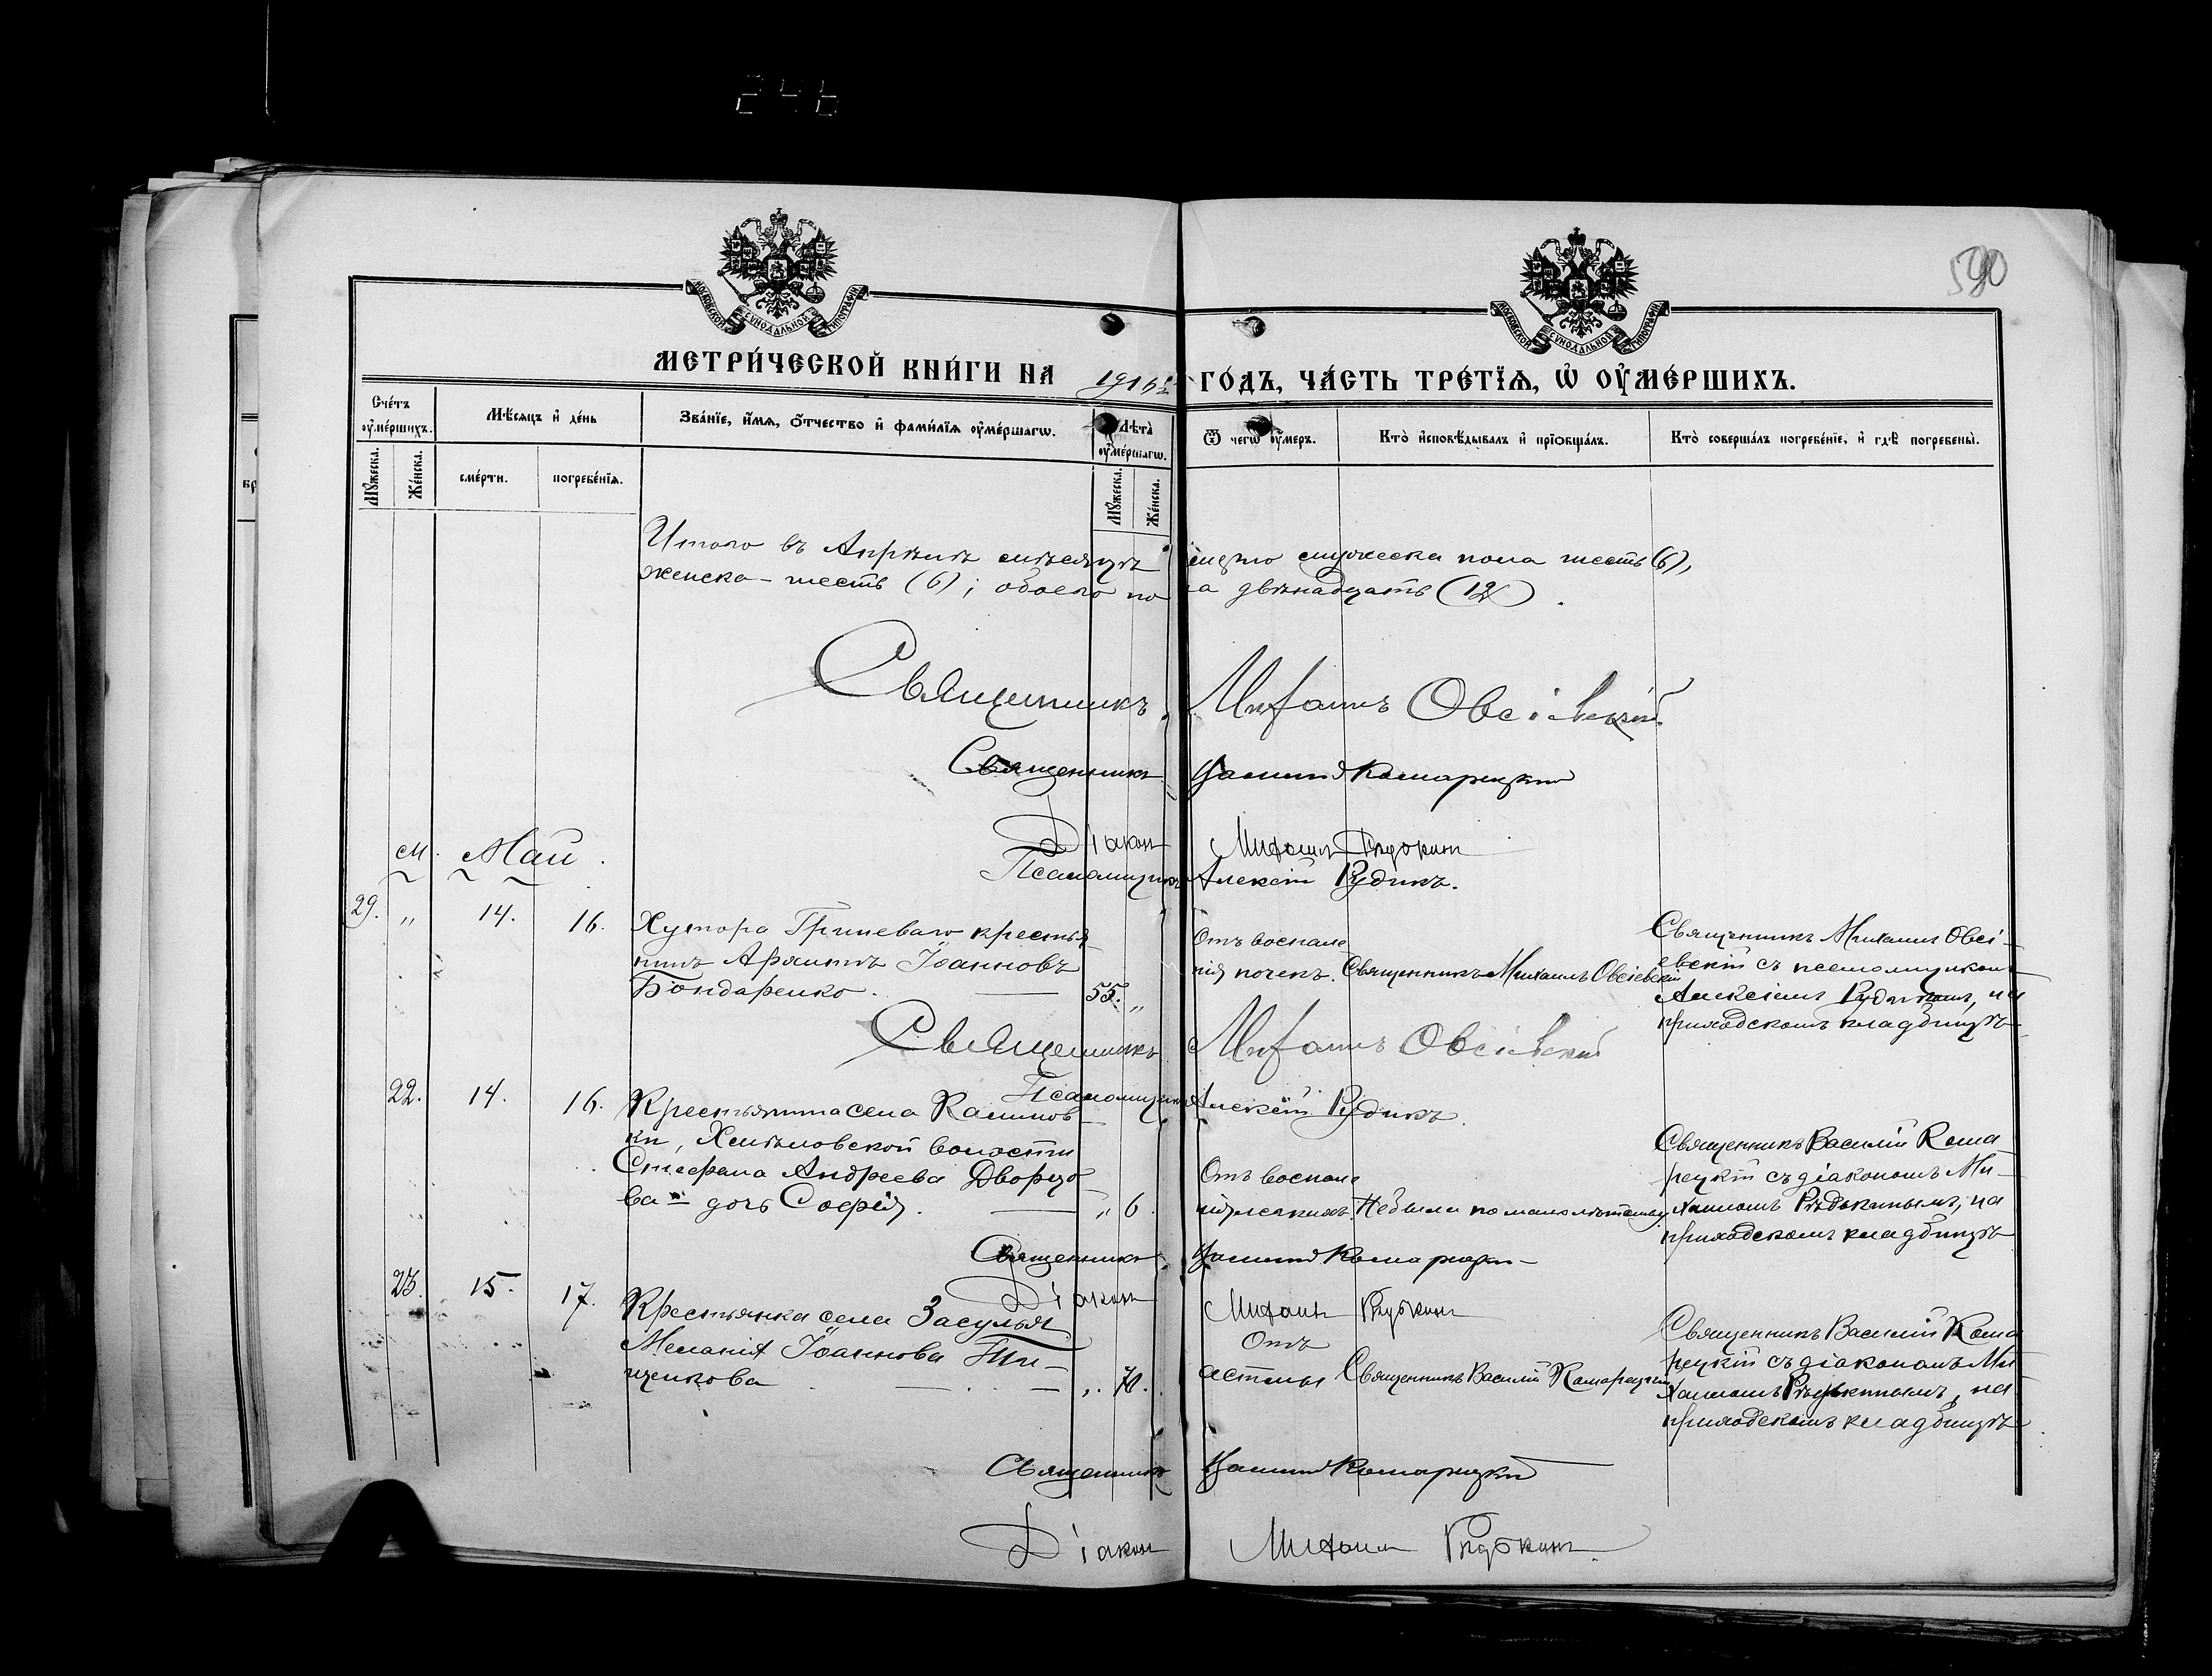 246
590
МОСКОВСКОЙ СУНОДАЛЬНОЙ ТИПОГРАФІИ
МОСКОВСКОЙ СУНОДАЛЬНОЙ ТИПОГРАФІИ
МЕТРИ́ЧЕСКОЙ КНИ́ГИ НА ГО́ДЪ, ЧА́СТЬ ТРЕ́ТЇѦ, Ѡ҆ ОУ҆МЕ́РШИХЪ.
Сче́тъ оу҆ме́ршихъ.
Мѣ́сѧцъ и҆ де́нь
Зва́нїе, и҆́мѧ, ѻ҆́тчество и҆ фами́лїѧ оу҆ме́ршагѡ.
Лѣта̀ оу҆ме́ршагѡ.
Ѿ чегѡ̀ оу҆́меръ.
Кто̀ и҆сповѣ́дывалъ и҆ прїѡбща́лъ.
Кто̀ соверша́лъ погребе́нїе, и҆ гдѣ̀ погребены̀.
Мꙋ́жеска.
Же́нска.
сме́рти.
погребе́нїѧ.
Мꙋ́жеска.
Же́нска.
Итого въ Апрѣлѣ мѣсяцѣ мужеска пола шесть (6),
женска – шесть (6); обоего по ла двѣнадцать (12).
Священникъ Михаилъ Овсіевскій
Священникъ Василій Комарецкій
Діаконъ Михаилъ Рѣдькинъ
М. Май.
Псаломщикъ Алексій Рудикъ.
29. „ 14. 16. Хутора Гриневаго крестья-
нинъ Афанотъ Іоанновъ
Бондаренко. — 55. „
Отъ воспале
нія почекъ.
Священникъ Михаилъ Овсіевскій
Священникъ Михаилъ Овсі-
евскій съ псаломщикомъ
Алексіемъ Рудикомъ, на
приходскомъ кладбищѣ
Священникъ Михаилъ Овсіевскій
Псаломщикъ Алексій Рудикъ.
22. 14. 16. Крестьянина села Калинов-
ки, Хмѣловской волости
Стефана Андреева Дворцо-
ва – дочь Софія. — „ 6.
Отъ воспале
нія легкихъ.
Не была по малолѣтству
Священникъ Василій Кома
рецкій съ діакономъ Ми-
хаиломъ Рѣдькинымъ, на
приходскомъ кладбищѣ
Священникъ Василій Комарецкій
Діаконъ Михаилъ Рѣдькинъ
23. 15. 17. Крестьянка села Засулья
Меланія Іоаннова Ти-
щенкова — — „ 70.
Отъ
астмы
Священникъ Василій Комарецкій
Священникъ Василій Кома
рецкій съ діакономъ Ми
хаиломъ Рѣдькинымъ, на
приходскомъ кладбищѣ
Священникъ Василій Комарецкій
Діаконъ Михаилъ Рѣдькинъ.